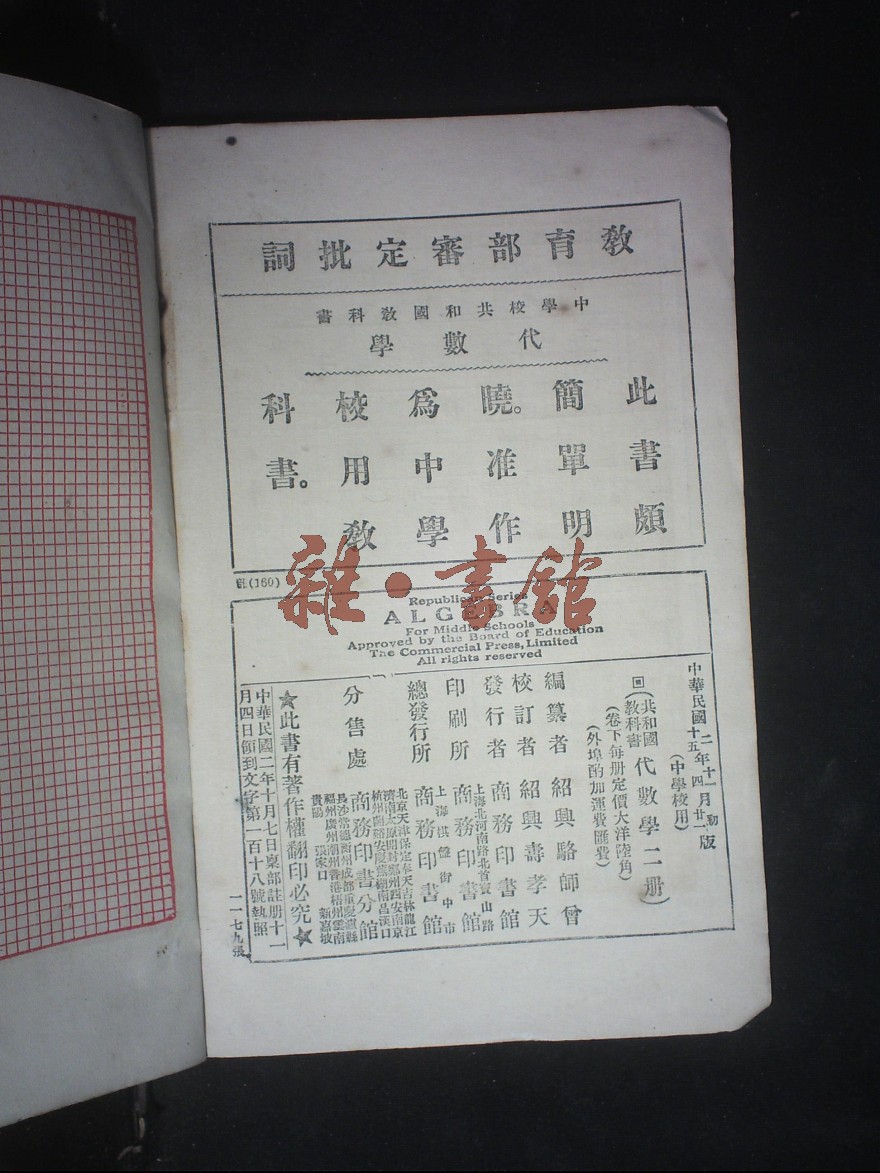 教育部審定批詞
中學校共和國教科書
代數學
此書頗
簡單明
曉。准作
爲中學
校用教
科書。
(160)
雜·書館
Republican Series
ALGEBRA
For Middle Schools
Approved by the Board of Education
The Commercial Press, Limited
All rights reserved
中華民國
二年十一月初版
十五年四月廿一版
(中學校用)
(共和國教科書 代數學二册)
(卷下每册定價大洋陸角)
(外埠酌加運費匯費)
編纂者 紹興駱師曾
校訂者 紹興壽孝天
發行者 商務印書館
上海北河南路北首寶山路
印刷所 商務印書館
上海棋盤街中市
總發行所 商務印書館
北京天津保定奉天吉林龍江
濟南太原開封鄭州西安南京
杭州蘭谿安慶蕪湖南昌漢口
分售處 商務印書分館
長沙常德衡州成都重慶瀘縣
福州廣州潮州香港梧州雲南
貴陽 張家口 新嘉坡
★此書有著作權翻印必究★
中華民國二年十月七日稟部註册十二
月四日領到文字第一百十八號執照
一一七九張